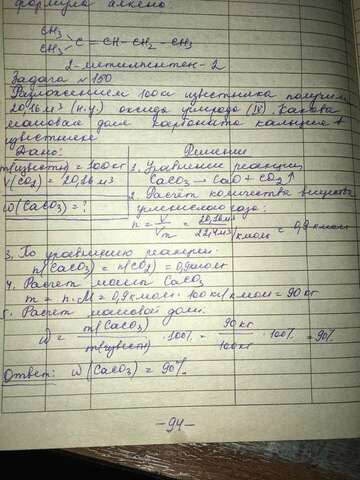 формула алкена:
CH₃
CH₃ C = CH – CH₂ – CH₃
2-метилпентен-2
Задача №150
Разложением 100кг известняка получили
20,16 м³ (н.у.) оксида углерода (IV). Какова
массовая доля карбоната кальция в
известняке
Дано: Решение
m(известн) = 100кг 1. Уравнение реакции
V(CO₂) = 20,16 м³ CaCO₃ → CaO + CO₂↑
ω(CaCO₃) = ? 2. Расчет количества вещества
углекислого газа:
n = V/Vm = 20,16м³ / 22,4м³/кмоль = 0,9 кмоль
3. По уравнению реакции:
n(CaCO₃) = n(CO₂) = 0,9кмоль
4. Расчет массы CaCO₃
m = n · M = 0,9кмоль · 100кг/кмоль = 90кг
5. Расчет массовой доли:
ω = m(CaCO₃) / m(известн) · 100% = 90кг / 100кг · 100% = 90%
Ответ: ω(CaCO₃) = 90%
–94–